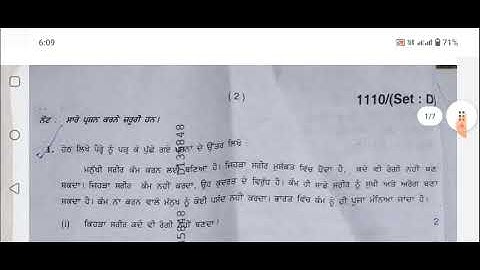 6:09
71%
(2)
1110/(Set : D)
1/7
ਨੋਟ : ਸਾਰੇ ਪ੍ਰਸ਼ਨ ਕਰਨੇ ਜ਼ਰੂਰੀ ਹਨ।
1. ਹੇਠ ਲਿਖੇ ਪੈਰ੍ਹੇ ਨੂੰ ਪੜ੍ਹ ਕੇ ਪੁੱਛੇ ਗਏ ਪ੍ਰਸ਼ਨਾਂ ਦੇ ਉੱਤਰ ਲਿਖੋ :
ਮਨੁੱਖੀ ਸਰੀਰ ਕੰਮ ਕਰਨ ਲਈ ਬਣਿਆ ਹੈ। ਜਿਹੜਾ ਸਰੀਰ ਮੁਸ਼ੱਕਤ ਵਿੱਚ ਹੁੰਦਾ ਹੈ, ਕਦੇ ਵੀ ਰੋਗੀ ਨਹੀਂ ਬਣ
ਸਕਦਾ। ਜਿਹੜਾ ਸਰੀਰ ਕੰਮ ਨਹੀਂ ਕਰਦਾ, ਉਹ ਕੁਦਰਤ ਦੇ ਵਿਰੁੱਧ ਹੈ। ਕੰਮ ਹੀ ਸਾਡੇ ਸਰੀਰ ਨੂੰ ਸੁਖੀ ਅਤੇ ਅਰੋਗ ਬਣਾ
ਸਕਦਾ ਹੈ। ਕੰਮ ਨਾ ਕਰਨ ਵਾਲੇ ਮਨੁੱਖ ਨੂੰ ਕੋਈ ਪਸੰਦ ਨਹੀਂ ਕਰਦਾ। ਭਾਰਤ ਵਿੱਚ ਕੰਮ ਨੂੰ ਹੀ ਪੂਜਾ ਮੰਨਿਆ ਜਾਂਦਾ ਹੈ।
(i) ਕਿਹੜਾ ਸਰੀਰ ਕਦੇ ਵੀ ਰੋਗੀ ਨਹੀਂ ਬਣਦਾ ? 2